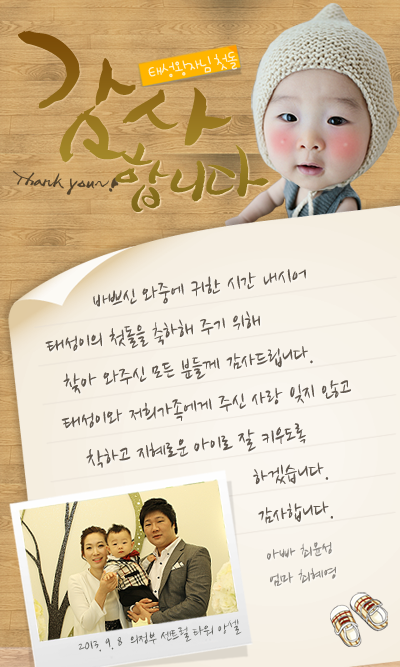 태성왕자님 첫돌
감사
합니다
Thank you~!
바쁘신 와중에 귀한 시간 내시어
태성이의 첫돌을 축하해 주기 위해
찾아 와주신 모든 분들께 감사드립니다.
태성이와 저희가족에게 주신 사랑 잊지 않고
착하고 지혜로운 아이로 잘 키우도록
하겠습니다.
감사합니다.
아빠 최윤성
엄마 최혜영
2013. 9. 8 의정부 센트럴 타워 앙셀